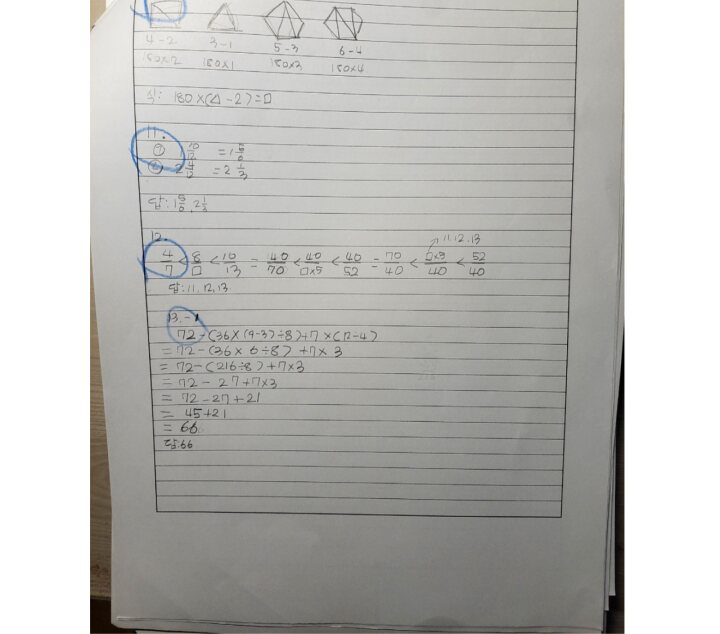 4-2 3-1 5-3 6-4
180×2 180×1 180×3 180×4
식: 180×(△-2)=□
11.
① 1 10/12 =1 5/6
② 2 4/12 =2 1/3
답: 1 5/6, 2 1/3
12. 11, 12, 13
4/7 < 8/□ < 10/13 = 40/70 < 40/□×5 < 40/52 = 70/40 < □×5/40 < 52/40
답: 11, 12, 13
13.-1
72-(36×(9-3)÷8)+7×(7-4)
=72-(36×6÷8)+7×3
=72-(216÷8)+7×3
=72-27+7×3
=72-27+21
=45+21
=66
답:66